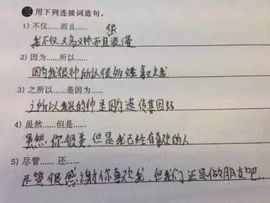 三 用下列连接词造句。
1) 不仅……而且……
很
我不仅又高又帅而且很浪漫
2) 因为……所以……
因为我很帅所以很多妹喜欢我
3) 之所以……是因为……
之所以我很帅是因为遗传基因好
4) 虽然……但是……
虽然你很美但是我已经有喜欢的人
5) 尽管……还……
尽管很感谢你喜欢我 但我们还是做朋友吧